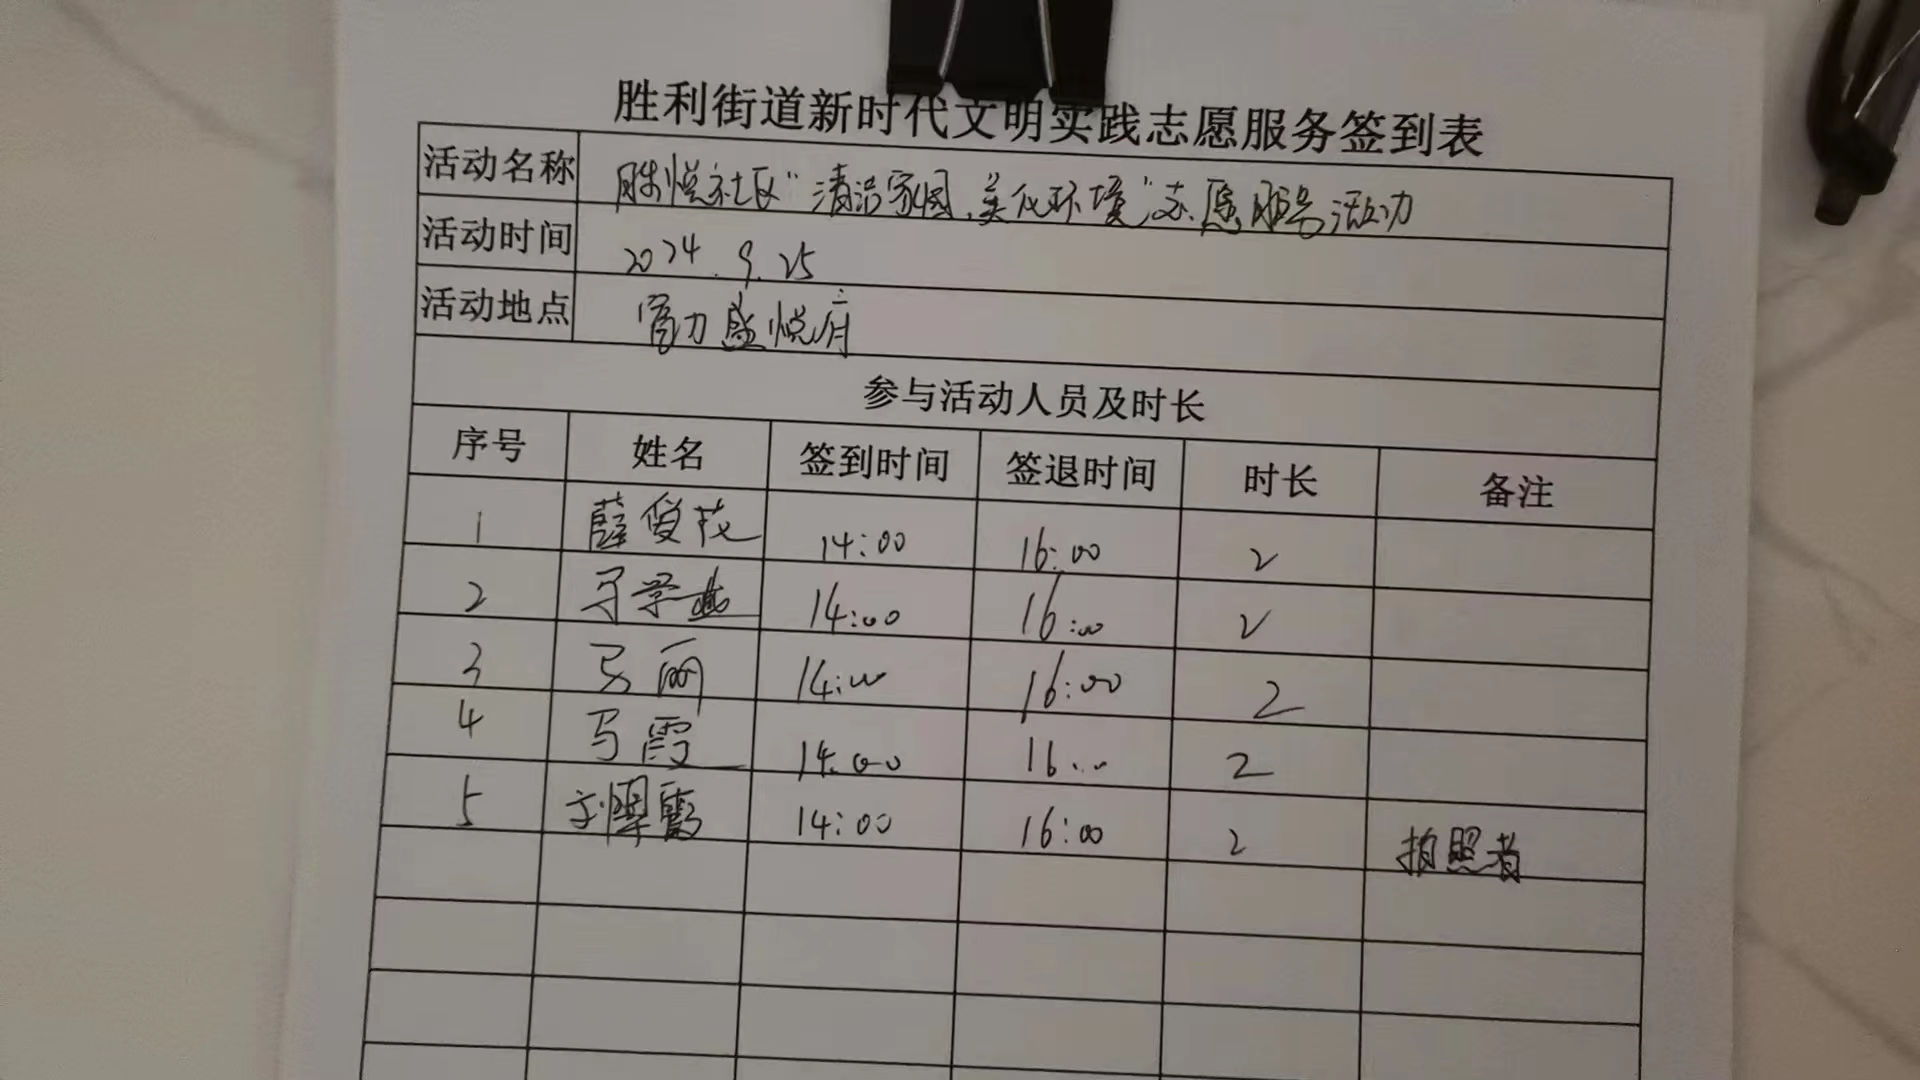 胜利街道新时代文明实践志愿服务签到表
活动名称 胜悦社区“清洁家园,美化环境”志愿服务活动
活动时间 2024.9.25
活动地点 富力盛悦府
参与活动人员及时长
序号 姓名 签到时间 签退时间 时长 备注
1 薛俊茂 14:00 16:00 2
2 马学燕 14:00 16:00 2
3 马丽 14:00 16:00 2
4 马霞 14:00 16:00 2
5 14:00 16:00 2 拍照者